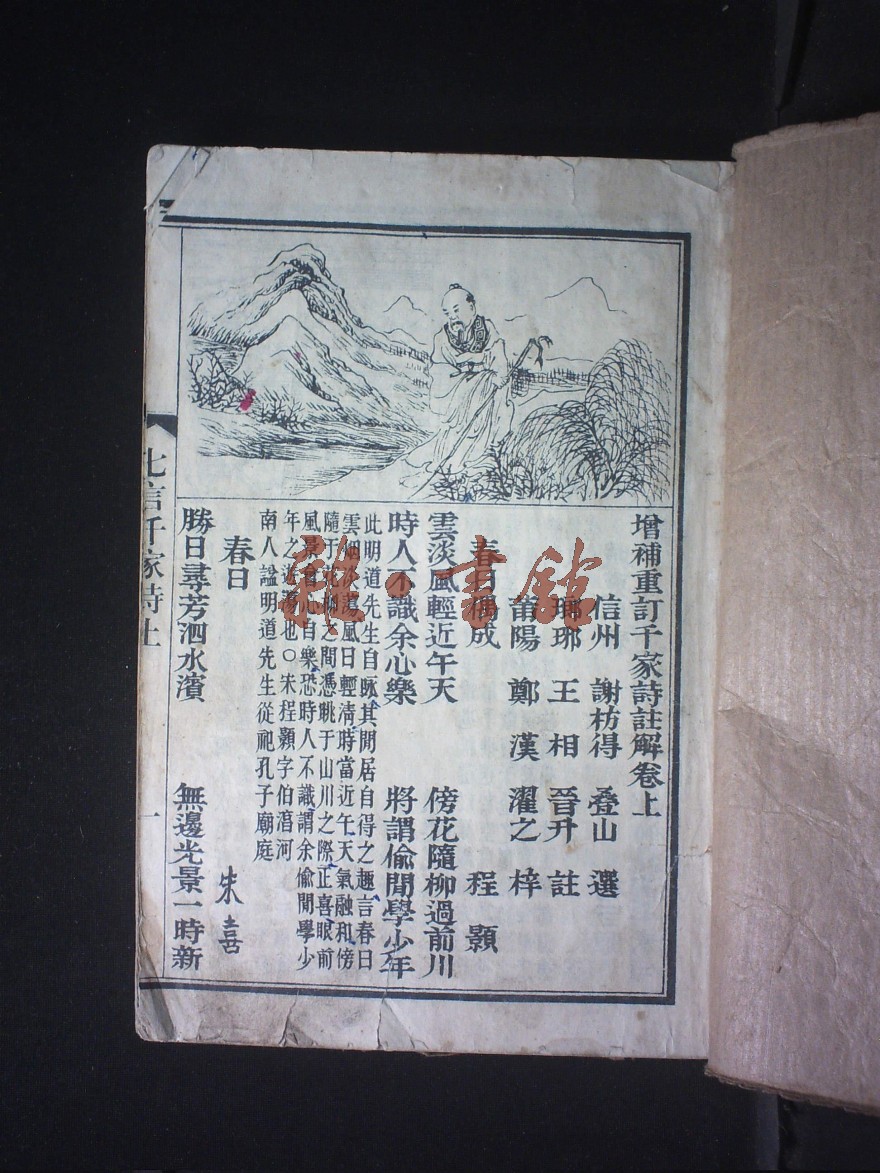 增補重訂千家詩註解卷上
信州 謝枋得 叠山 選
瑯琊 王相 晉升 註
莆陽 鄭漢 濯之 梓
春日偶成 程顥
雲淡風輕近午天 傍花隨柳過前川
時人不識余心樂 將謂偷閒學少年
此明道先生自咏其閒居自得之趣言春日
雲烟淡蕩風日輕清時當近午天氣融和傍
隨于花柳之間憑眺于山川之際正喜眼前
風景會心自樂恐時人不識謂余偷閒學少
年之遊蕩也○宋程顥字伯淳河
南人諡明道先生從祀孔子廟庭
春日 朱熹
勝日尋芳泗水濱 無邊光景一時新
七言千家詩上 一
雜·書館